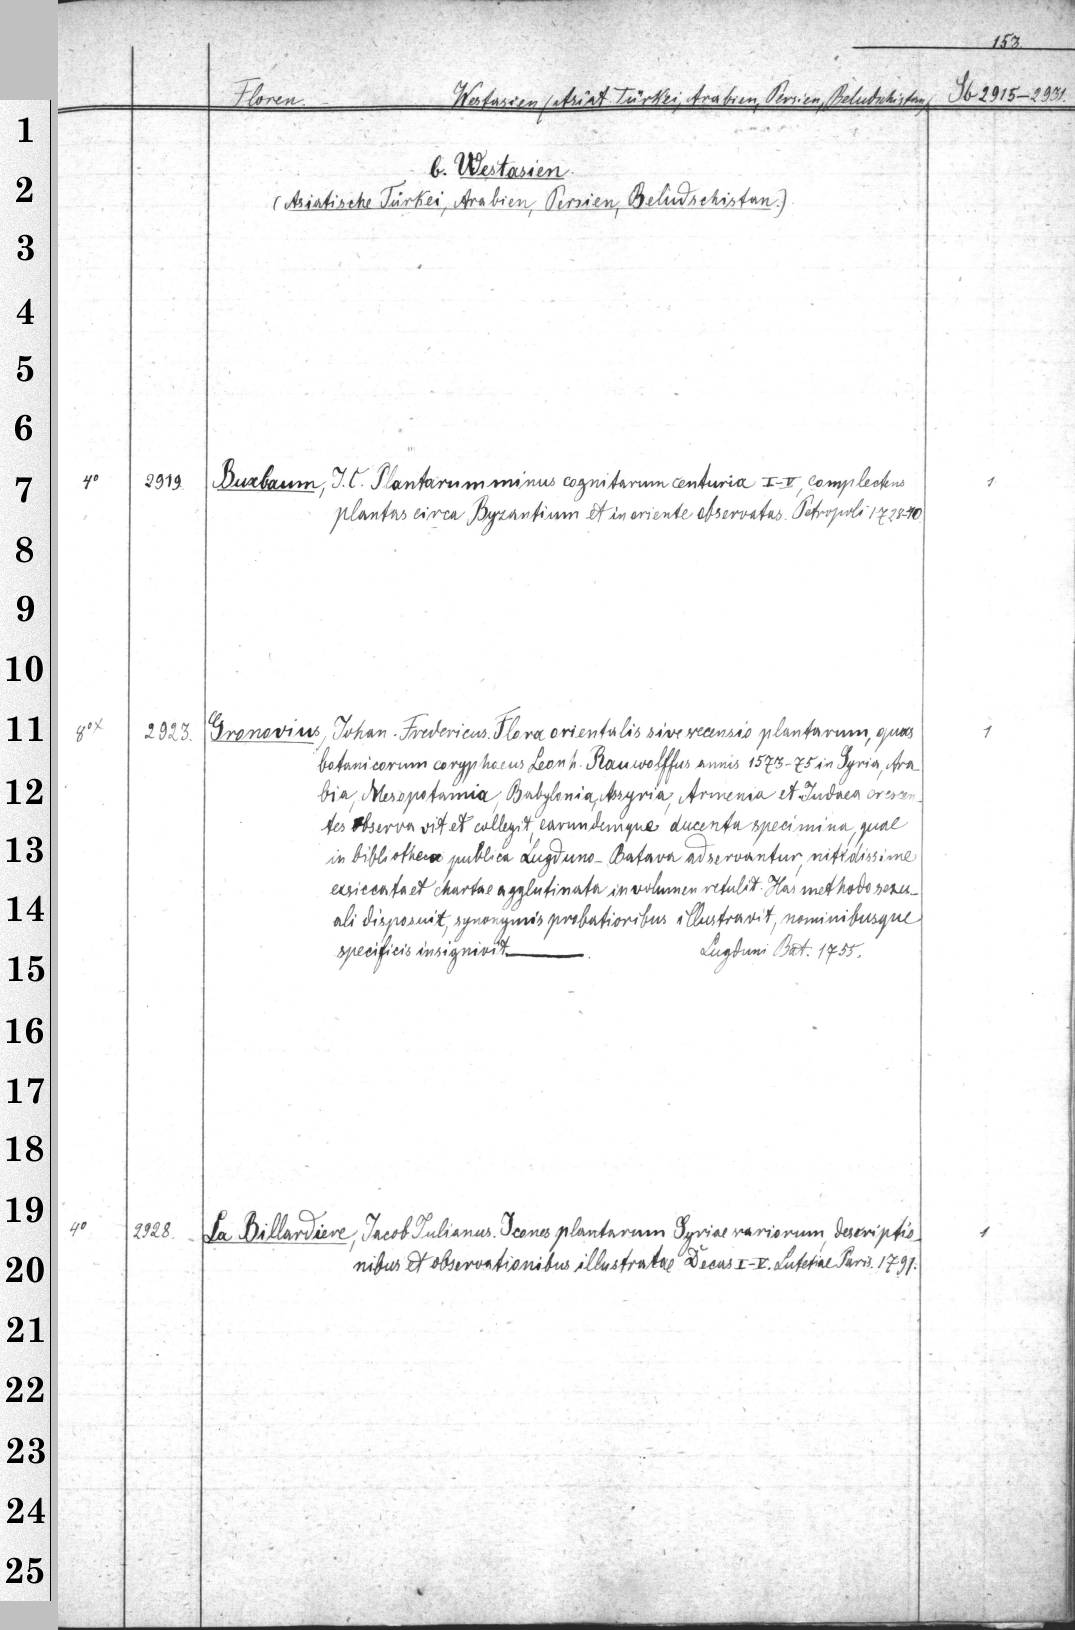 153.
Floren. Westasien (Asiat Türkei, Arabien, Persien, Beludschistan) Sb 2915–2931.
b. Westasien.
(Asiatische Türkei, Arabien, Persien, Beludschistan.)
4° 2919 Buxbaum, J. C. Plantarum minus cognitarum centuria I–V, complectens 1
plantas circa Byzantium et in oriente observatas. Petropoli 1728-40
8°x 2923. Gronovius, Johan. Fredericus. Flora orientalis sive recensio plantarum, quas 1
botanicorum coryphaeus Leonh. Rauwolffus annis 1573-75 in Syria, Ara
bia, Mesopotamia, Babylonia, Assyria, Armenia et Judaea crescen-
tes observavit et collegit, earundemque ducenta specimina, quae
in bibliotheca publica Lugduno-Batava adservantur, nitidissime
exsiccata et chartae agglutinata in volumen retulit. Has methodo sexu-
ali disposuit, synonymis probatioribus illustravit, nominibusque
specificis insignivit. Lugduni Bat. 1755.
4° 2928. La Billardiere, Jacob Julianus. Icones plantarum Syriae rariorum, descriptio- 1
nibus et observationibus illustratae Decas I-V. Lutetiae Paris. 1791.
1
2
3
4
5
6
7
8
9
10
11
12
13
14
15
16
17
18
19
20
21
22
23
24
25